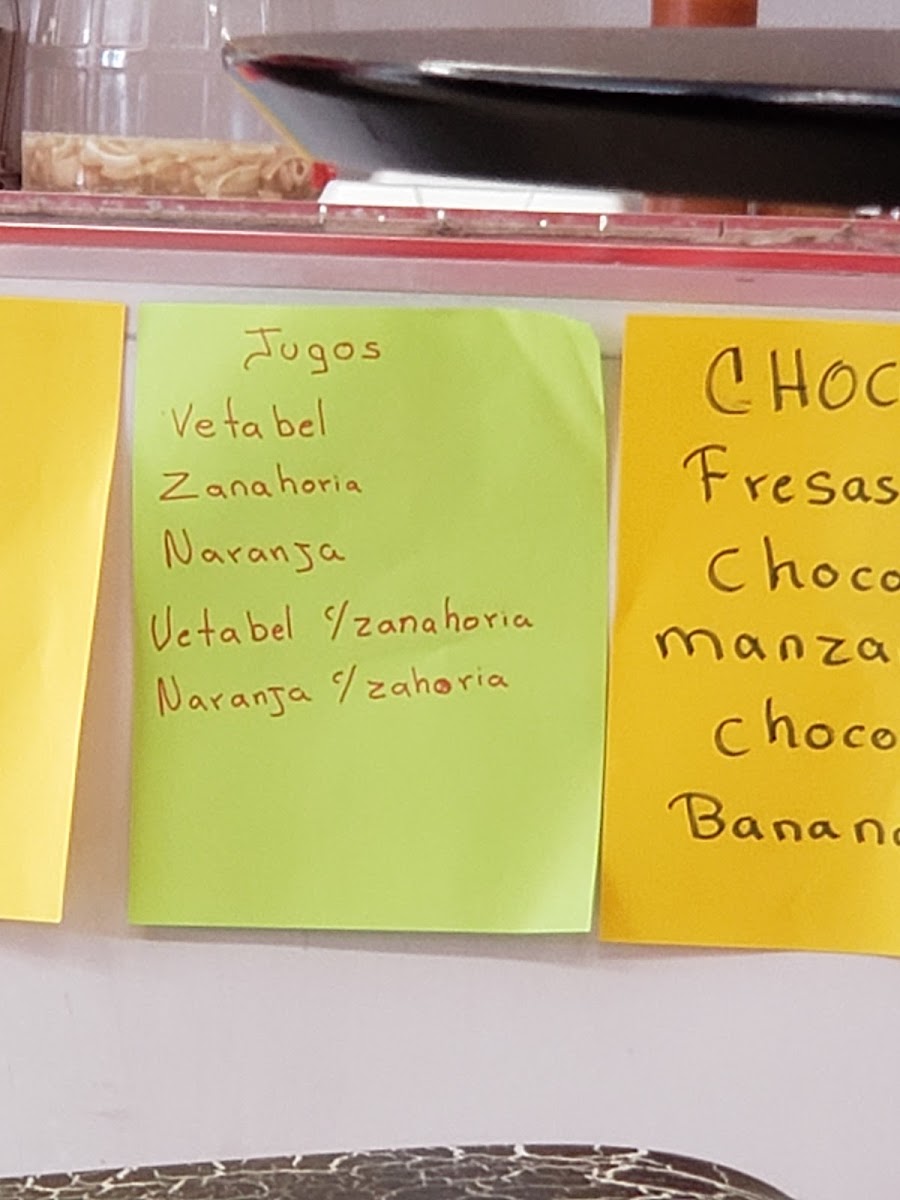 Jugos
Vetabel
Zanahoria
Naranja
Vetabel c/zanahoria
Naranja c/zahoria
CHOC
Fresas
Choco
manza
choco
Banana